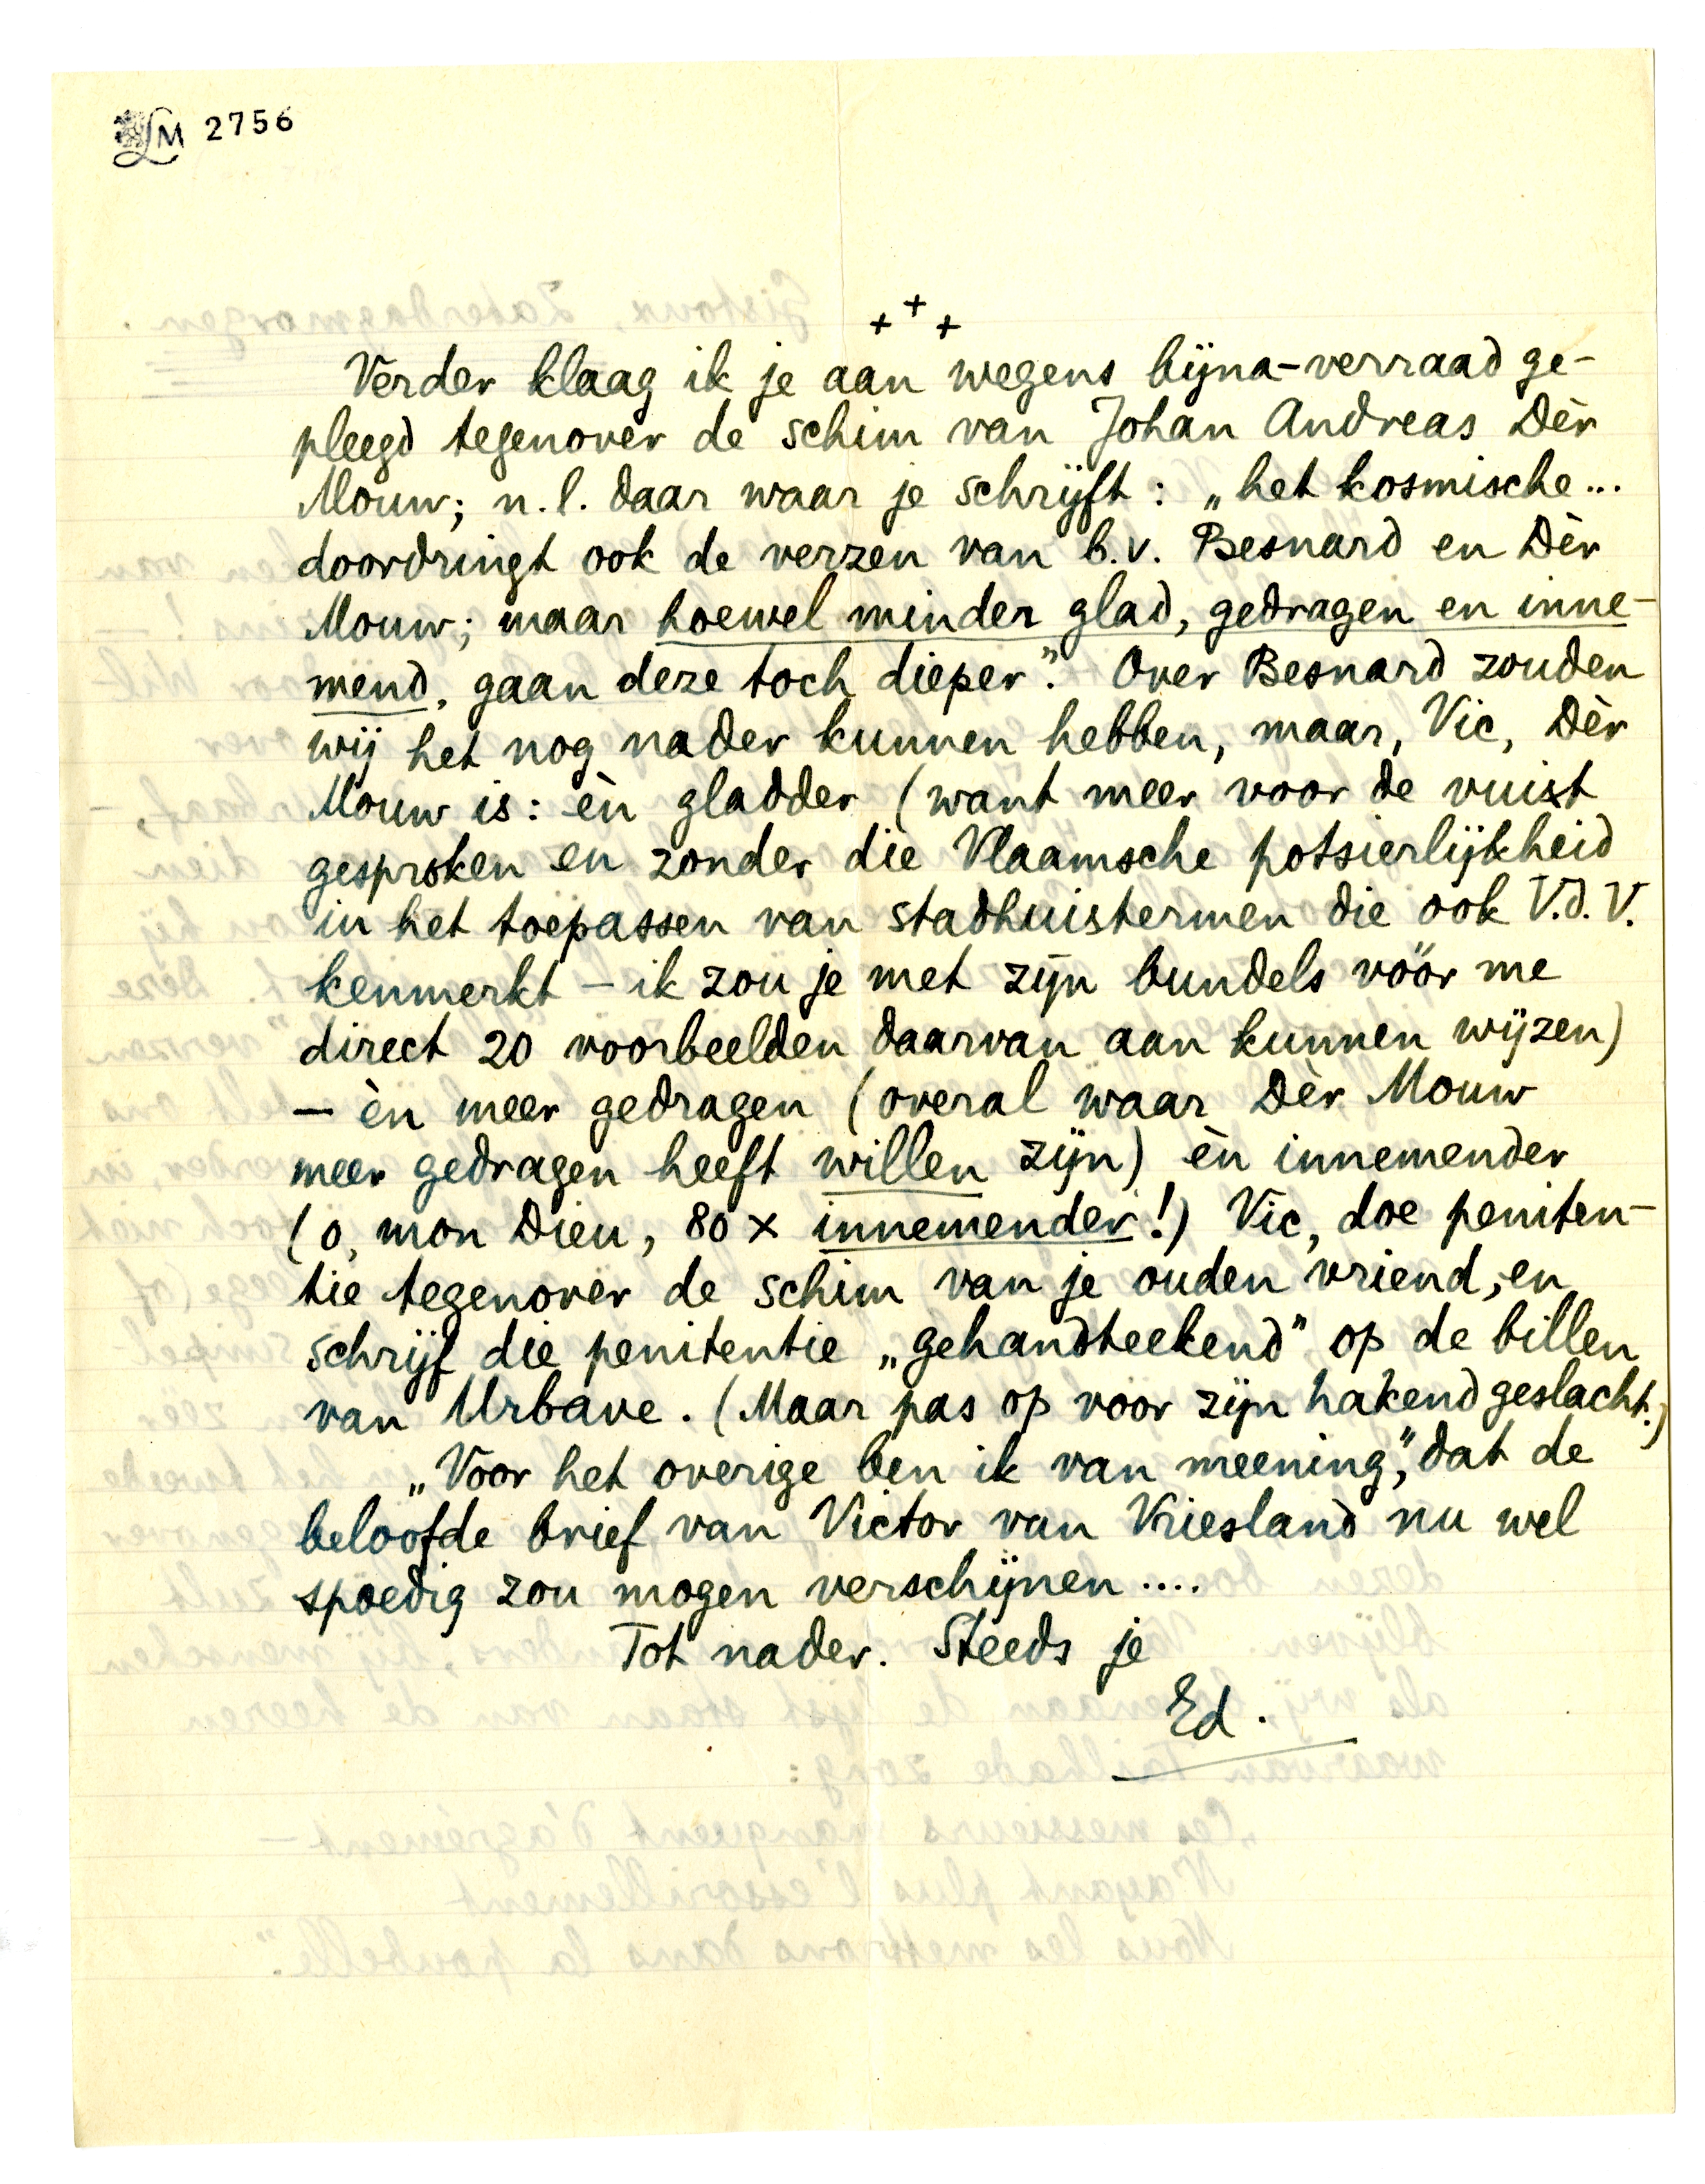 LM 2756
+ + +
Verder klaag ik je aan wegens bijna-verraad ge-
pleegd tegenover de schim van Johan Andreas Dèr
Mouw; n.l. daar waar je schrijft: „het kosmische...
doordringt ook de verzen van b.v. Besnard en Dèr
Mouw; maar hoewel minder glad, gedragen en inne-
mend, gaan deze toch dieper". Over Besnard zouden
wij het nog nader kunnen hebben, maar, Vic, Dèr
Mouw is: èn gladder (want meer voor de vuist
gesproken en zonder die Vlaamsche potsierlijkheid
in het toepassen van stadhuistermen die ook V.d.V.
kenmerkt – ik zou je met zijn bundels vóór me
direct 20 voorbeelden daarvan aan kunnen wijzen)
– èn meer gedragen (overal waar Dèr Mouw
meer gedragen heeft willen zijn) èn innemender
(o, mon Dieu, 80 x innemender!) Vic, doe peniten-
tie tegenover de schim van je ouden vriend, en
schrijf die penitentie „gehandteekend" op de billen
van Urbave. (Maar pas op voor zijn hakend geslacht.)
„Voor het overige ben ik van meening", dat de
beloofde brief van Victor van Vriesland nu wel
spoedig zou mogen verschijnen ....
Tot nader. Steeds je
Ed.